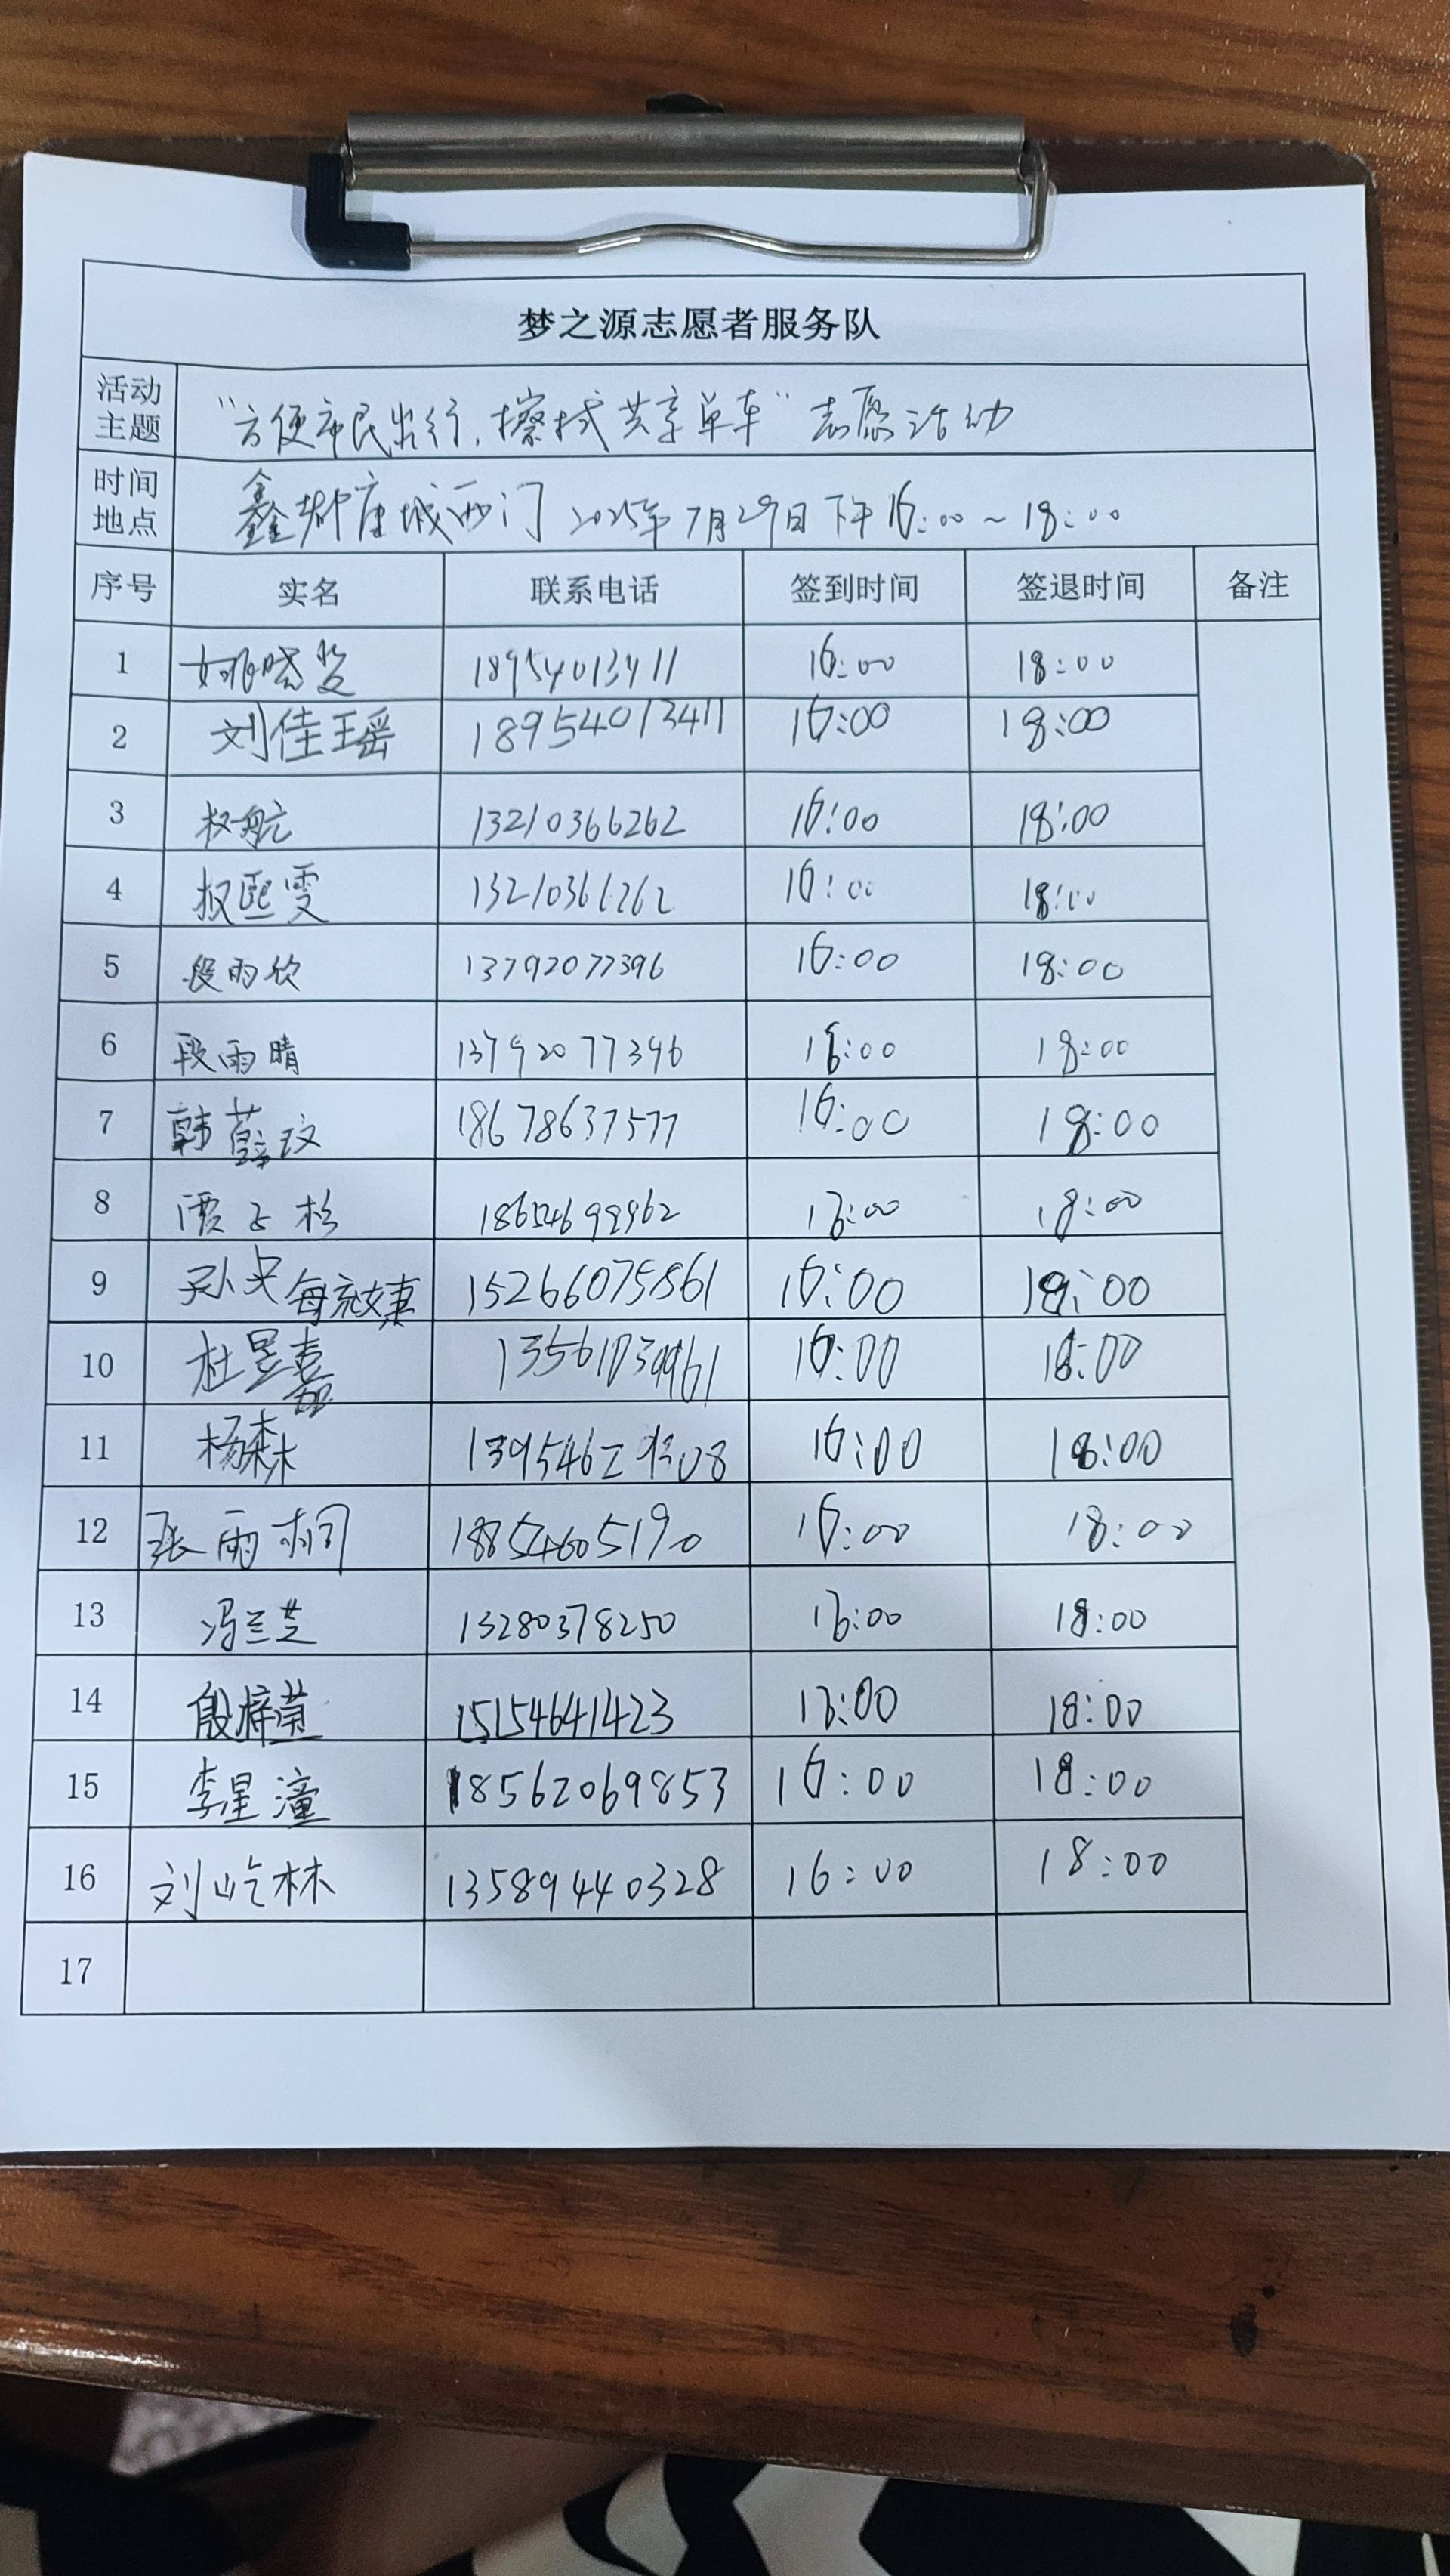 梦之源志愿者服务队
活动主题 "方便市民出行,擦拭共享单车"志愿活动
时间地点 鑫都康城西门 2025年7月29日下午16:00~18:00
序号 实名 联系电话 签到时间 签退时间 备注
1 姚晓 18954013411 16:00 18:00
2 刘佳瑶 18954013411 16:00 18:00
3 权航 13210366262 16:00 18:00
4 权熙雯 13210366262 16:00 18:00
5 段雨欣 13792077396 16:00 18:00
6 段雨晴 13792077396 16:00 18:00
7 韩文 18678637577 16:00 18:00
8 贾子杉 16:00 18:00
9 孙 15266075861 16:00 18:00
10 杜昱嘉 16:00 18:00
11 杨森 16:00 18:00
12 张雨桐 18854605190 16:00 18:00
13 冯兰芝 13280378250 16:00 18:00
14 殷梓萱 15154641423 16:00 18:00
15 李星潼 18562069853 16:00 18:00
16 刘屹林 13589440328 16:00 18:00
17